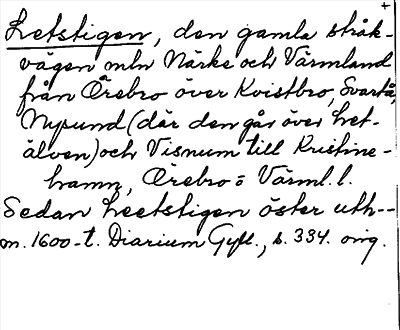 Letstigen, den gamla stråk-
vägen mln Närke och Värmland
från Örebro över Kvistbro, Svartå,
Nysund (där den går över Let-
älven) och Visnum till Kristine-
hamn, Örebro o Värml. l.
Sedan Leetstigen öster uth--
m. 1600-t. Diarium Gyll., s. 334. orig.